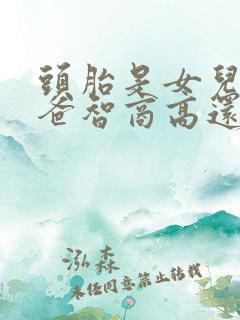 頭胎是女兒
爸智商高還
泓森
未經同意禁止轉載